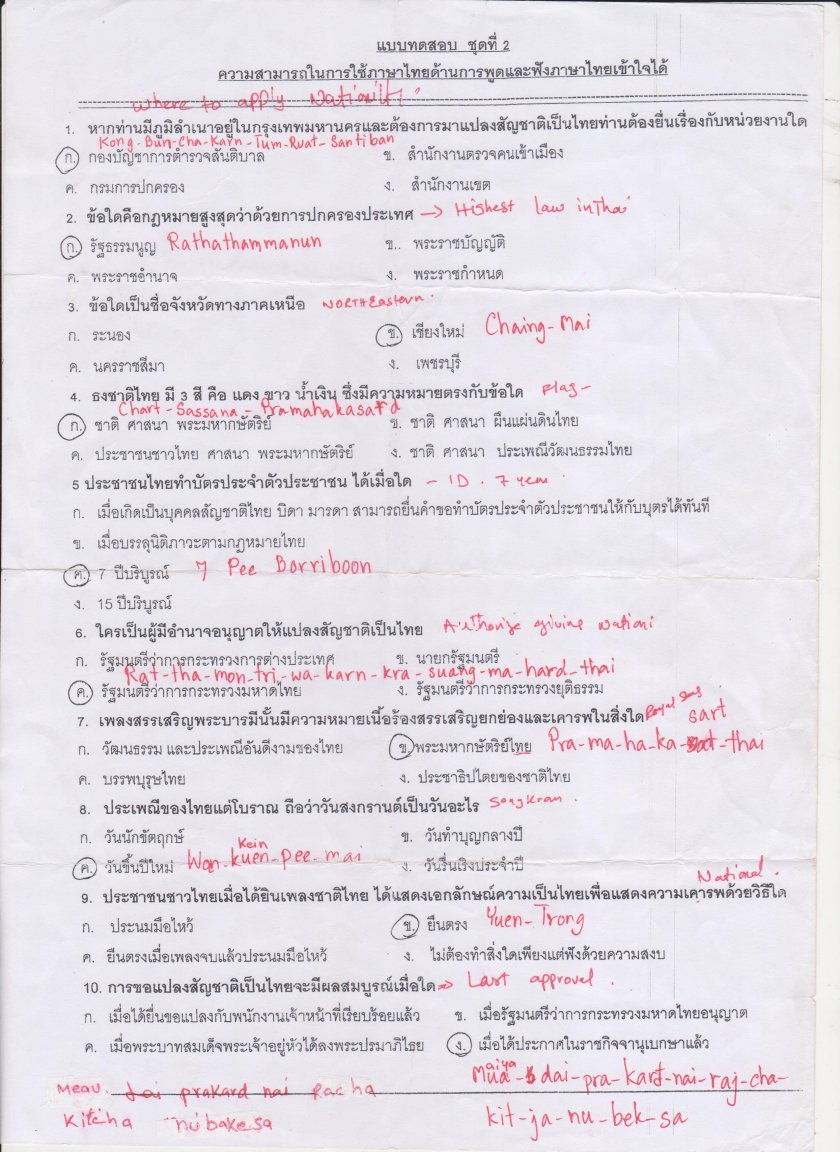 แบบทดสอบ ชุดที่ 2
ความสามารถในการใช้ภาษาไทยด้านการพูดและฟังภาษาไทยเข้าใจได้
where to apply
1. หากท่านมีภูมิลำเนาอยู่ในกรุงเทพมหานครและต้องการมาแปลงสัญชาติเป็นไทยท่านต้องยื่นเรื่องกับหน่วยงานใด
Kong-Bun-Cha-Karn-Tum-Ruat-Santiban
ก. กองบัญชาการตำรวจสันติบาล ข. สำนักงานตรวจคนเข้าเมือง
ค. กรมการปกครอง ง. สำนักงานเขต
2. ข้อใดคือกฎหมายสูงสุดว่าด้วยการปกครองประเทศ → Highest law in Thai
ก. รัฐธรรมนูญ Rathathammanun ข.. พระราชบัญญัติ
ค. พระราชอำนาจ ง. พระราชกำหนด
3. ข้อใดเป็นชื่อจังหวัดทางภาคเหนือ NORTHEastern.
ก. ระนอง ข. เชียงใหม่ Chaing-Mai
ค. นครราชสีมา ง. เพชรบุรี
4. ธงชาติไทย มี 3 สี คือ แดง ขาว น้ำเงิน ซึ่งมีความหมายตรงกับข้อใด Flag-
Chart-Sassana-Pramahakasard
ก. ชาติ ศาสนา พระมหากษัตริย์ ข. ชาติ ศาสนา ผืนแผ่นดินไทย
ค. ประชาชนชาวไทย ศาสนา พระมหากษัตริย์ ง. ชาติ ศาสนา ประเพณีวัฒนธรรมไทย
5 ประชาชนไทยทำบัตรประจำตัวประชาชน ได้เมื่อใด - ID. 7 year.
ก. เมื่อเกิดเป็นบุคคลสัญชาติไทย บิดา มารดา สามารถยื่นคำขอทำบัตรประจำตัวประชาชนให้กับบุตรได้ทันที
ข. เมื่อบรรลุนิติภาวะตามกฎหมายไทย
ค. 7 ปีบริบูรณ์ 7 Pee Borriboon
ง. 15 ปีบริบูรณ์
6. ใครเป็นผู้มีอำนาจอนุญาตให้แปลงสัญชาติเป็นไทย Authorize giving nationi
ก. รัฐมนตรีว่าการกระทรวงการต่างประเทศ ข. นายกรัฐมนตรี
Rat-tha-mon-tri-wa-karn-kra-suang-ma-hard-thai
ค. รัฐมนตรีว่าการกระทรวงมหาดไทย ง. รัฐมนตรีว่าการกระทรวงยุติธรรม
7. เพลงสรรเสริญพระบารมีนั้นมีความหมายเนื้อร้องสรรเสริญยกย่องและเคารพในสิ่งใด Royal Song
sart
ก. วัฒนธรรม และประเพณีอันดีงามของไทย ข. พระมหากษัตริย์ไทย Pra-ma-ha-ka-sat-thai
ค. บรรพบุรุษไทย ง. ประชาธิปไตยของชาติไทย
8. ประเพณีของไทยแต่โบราณ ถือว่าวันสงกรานต์เป็นวันอะไร Songkran.
ก. วันนักขัตฤกษ์ ข. วันทำบุญกลางปี
Kein
ค. วันขึ้นปีใหม่ Wan-kuen-pee-mai ง. วันรื่นเริงประจำปี
National.
9. ประชาชนชาวไทยเมื่อได้ยินเพลงชาติไทย ได้แสดงเอกลักษณ์ความเป็นไทยเพื่อแสดงความเคารพด้วยวิธีใด
ก. ประนมมือไหว้ ข. ยืนตรง Yuen-Trong
ค. ยืนตรงเมื่อเพลงจบแล้วประนมมือไหว้ ง. ไม่ต้องทำสิ่งใดเพียงแต่ฟังด้วยความสงบ
10. การขอแปลงสัญชาติเป็นไทยจะมีผลสมบูรณ์เมื่อใด ⇒ Last approvel.
ก. เมื่อได้ยื่นขอแปลงกับพนักงานเจ้าหน้าที่เรียบร้อยแล้ว ข. เมื่อรัฐมนตรีว่าการกระทรวงมหาดไทยอนุญาต
ค. เมื่อพระบาทสมเด็จพระเจ้าอยู่หัวได้ลงพระปรมาภิไธย ง. เมื่อได้ประกาศในราชกิจจานุเบกษาแล้ว
dai-pra-kard-nai-raj-cha-
kit-ja-nu-bek-sa
Meau. dai prakard nai Racha
Kitcha nubakesa